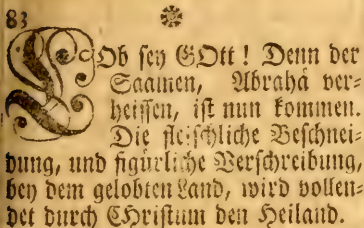 83
LOb sey GOtt! Denn der
Saamen, Abrahä ver=
heissen, ist nun kommen.
Die fleischliche Beschnei=
dung, und figürliche Verschreibung,
bey dem gelobten Land, wird vollen=
det durch CHristum den Heiland.